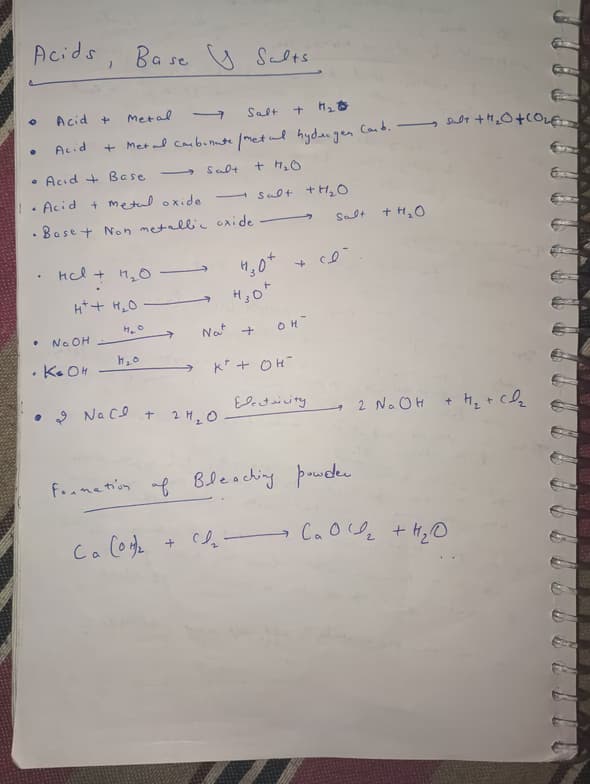 Acids, Base & Salts
• Acid + Metal → Salt + H₂
• Acid + Metal carbonate/metal hydrogen Carb. → salt + H₂O + CO₂
• Acid + Base → Salt + H₂O
• Acid + Metal oxide → Salt + H₂O
• Base + Non metallic oxide → Salt + H₂O
• HCl + H₂O → H₃O⁺ + Cl⁻
H⁺ + H₂O → H₃O⁺
• NaOH —H₂O→ Na⁺ + OH⁻
• KOH —H₂O→ K⁺ + OH⁻
• 2 NaCl + 2H₂O —Electricity→ 2 NaOH + H₂ + Cl₂
Formation of Bleaching powder
Ca(OH)₂ + Cl₂ → CaOCl₂ + H₂O